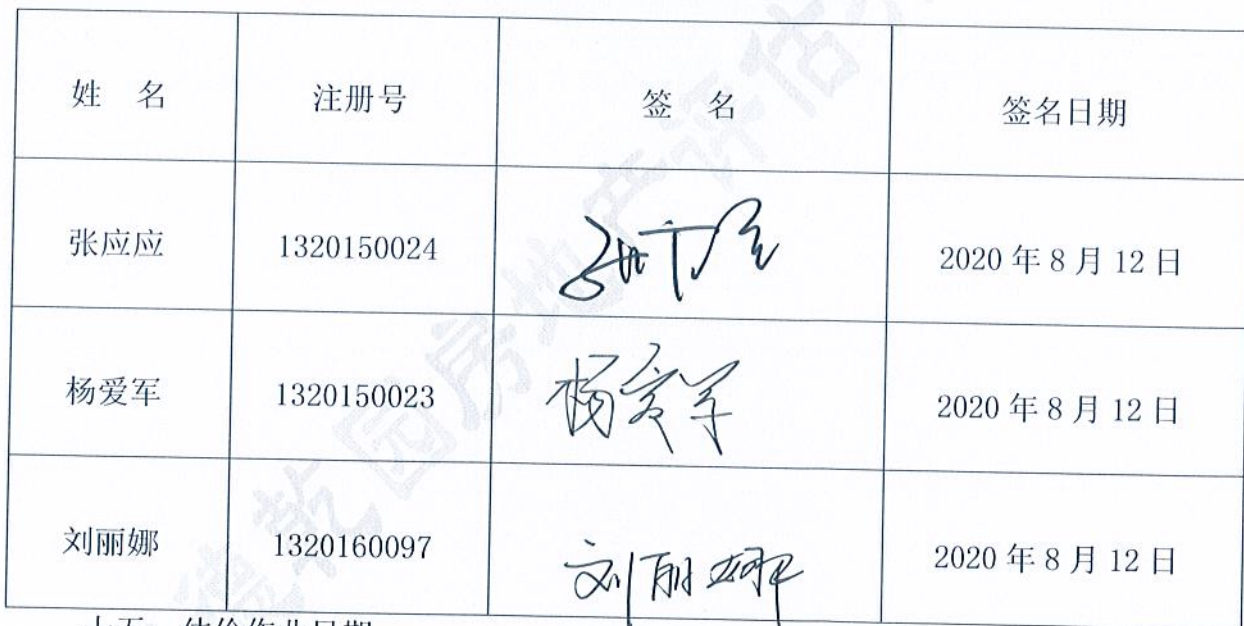 姓 名 注册号 签 名 签名日期
张应应 1320150024 2020年8月12日
杨爱军 1320150023 杨爱军 2020年8月12日
刘丽娜 1320160097 刘丽娜 2020年8月12日
乾园房地产评估